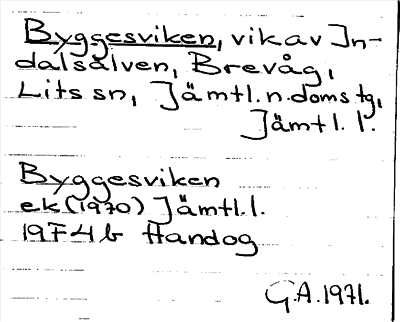 Byggesviken, vik av In-
dalsälven, Brevåg,
Lits sn, Jämtl.n.doms tg,
Jämtl. l.
Byggesviken
ek (1970) Jämtl.l.
19F4b Handog
G.A. 1971.